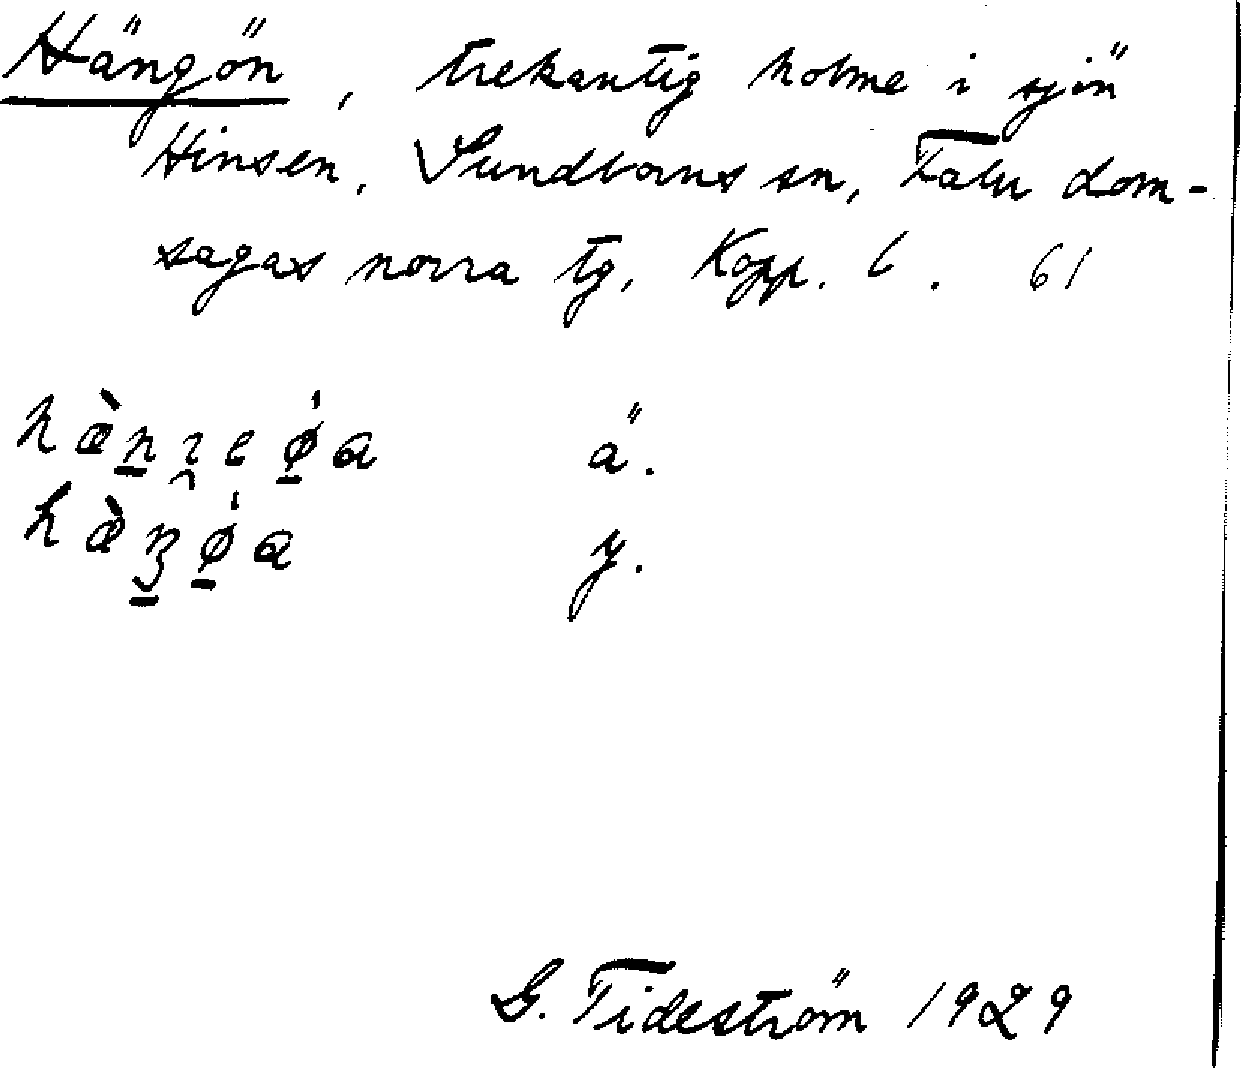 Hängön, trekantig holme i sjön
Hinsen, Sundborns sn, Falu dom-
sagas norra tg, Kopp. l. 61
ä.
y.
G. Tideström 1929